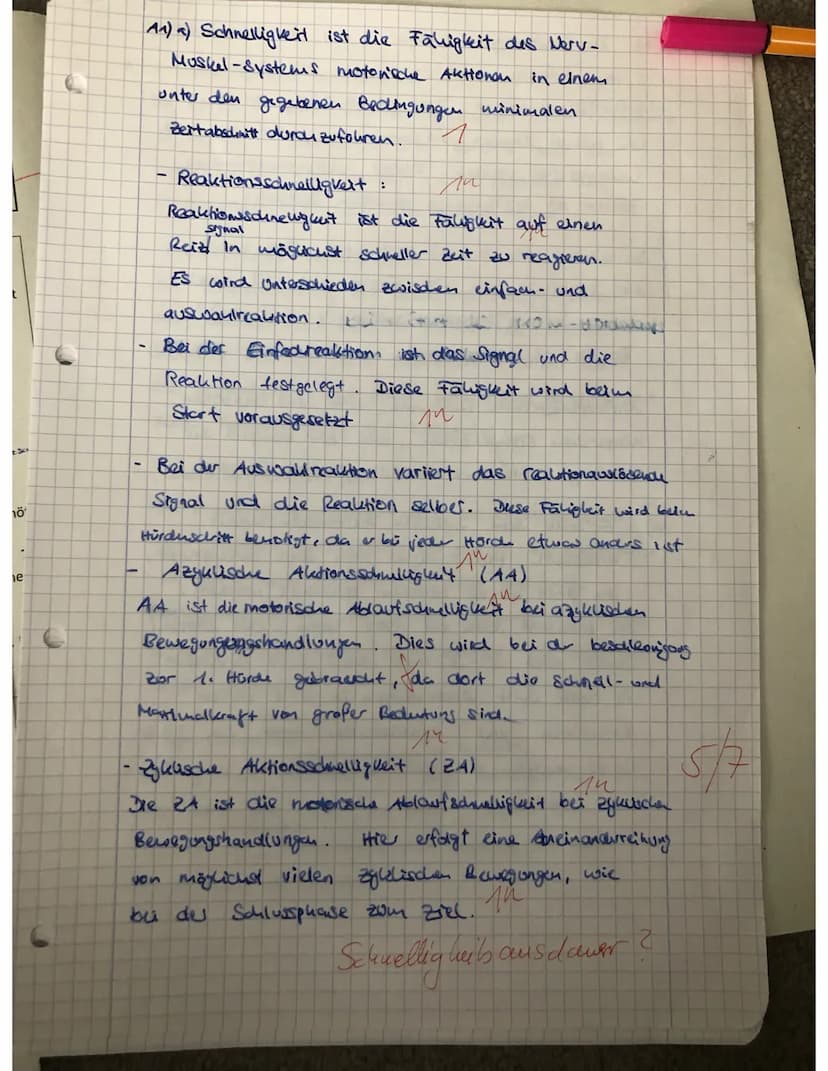 A1) a) Schnelligkeit ist die Fähigkeit des Nerv-
Muskel-Systems motorische Aktionen in einem
unter den gegebenen Bedingungen minimalen
Zeitabschnitt durchzuführen. 1
- Reaktionsschnelligkeit :
Reaktionsschnelligkeit ist die Fähigkeit auf einen
signal
Reiz in möglichst schneller Zeit zu reagieren.
Es wird unterschieden zwischen einfach- und
auswahlreaktion.
- Bei der Einfachreaktion ist das Signal und die
Reaktion festgelegt. Diese Fähigkeit wird beim
Start vorausgesetzt
- Bei der Auswahlreaktion variiert das reaktionauslösende
Signal und die Reaktion selber. Diese Fähigkeit wird beim
Hürdenschritt benötigt, da er bei jeder Hürde etwas anders ist
- Azyklische Aktionsschnelligkeit (AA)
AA ist die motorische Ablaufschnelligkeit bei azyklischen
Bewegungshandlungen. Dies wird bei der beschleunigung
zur 1. Hürde gebraucht, da dort die Schnell- und
Maximalkraft von großer Bedeutung sind.
- Zyklische Aktionsschnelligkeit (ZA)
5/7
Die ZA ist die motorische Ablaufschnelligkeit bei zyklischen
Bewegungshandlungen. Hier erfolgt eine Aneinanderreihung
von möglichst vielen zyklischen Bewegungen, wie
bei der Schlussphase zum Ziel.
Schnelligkeitsausdauer ?